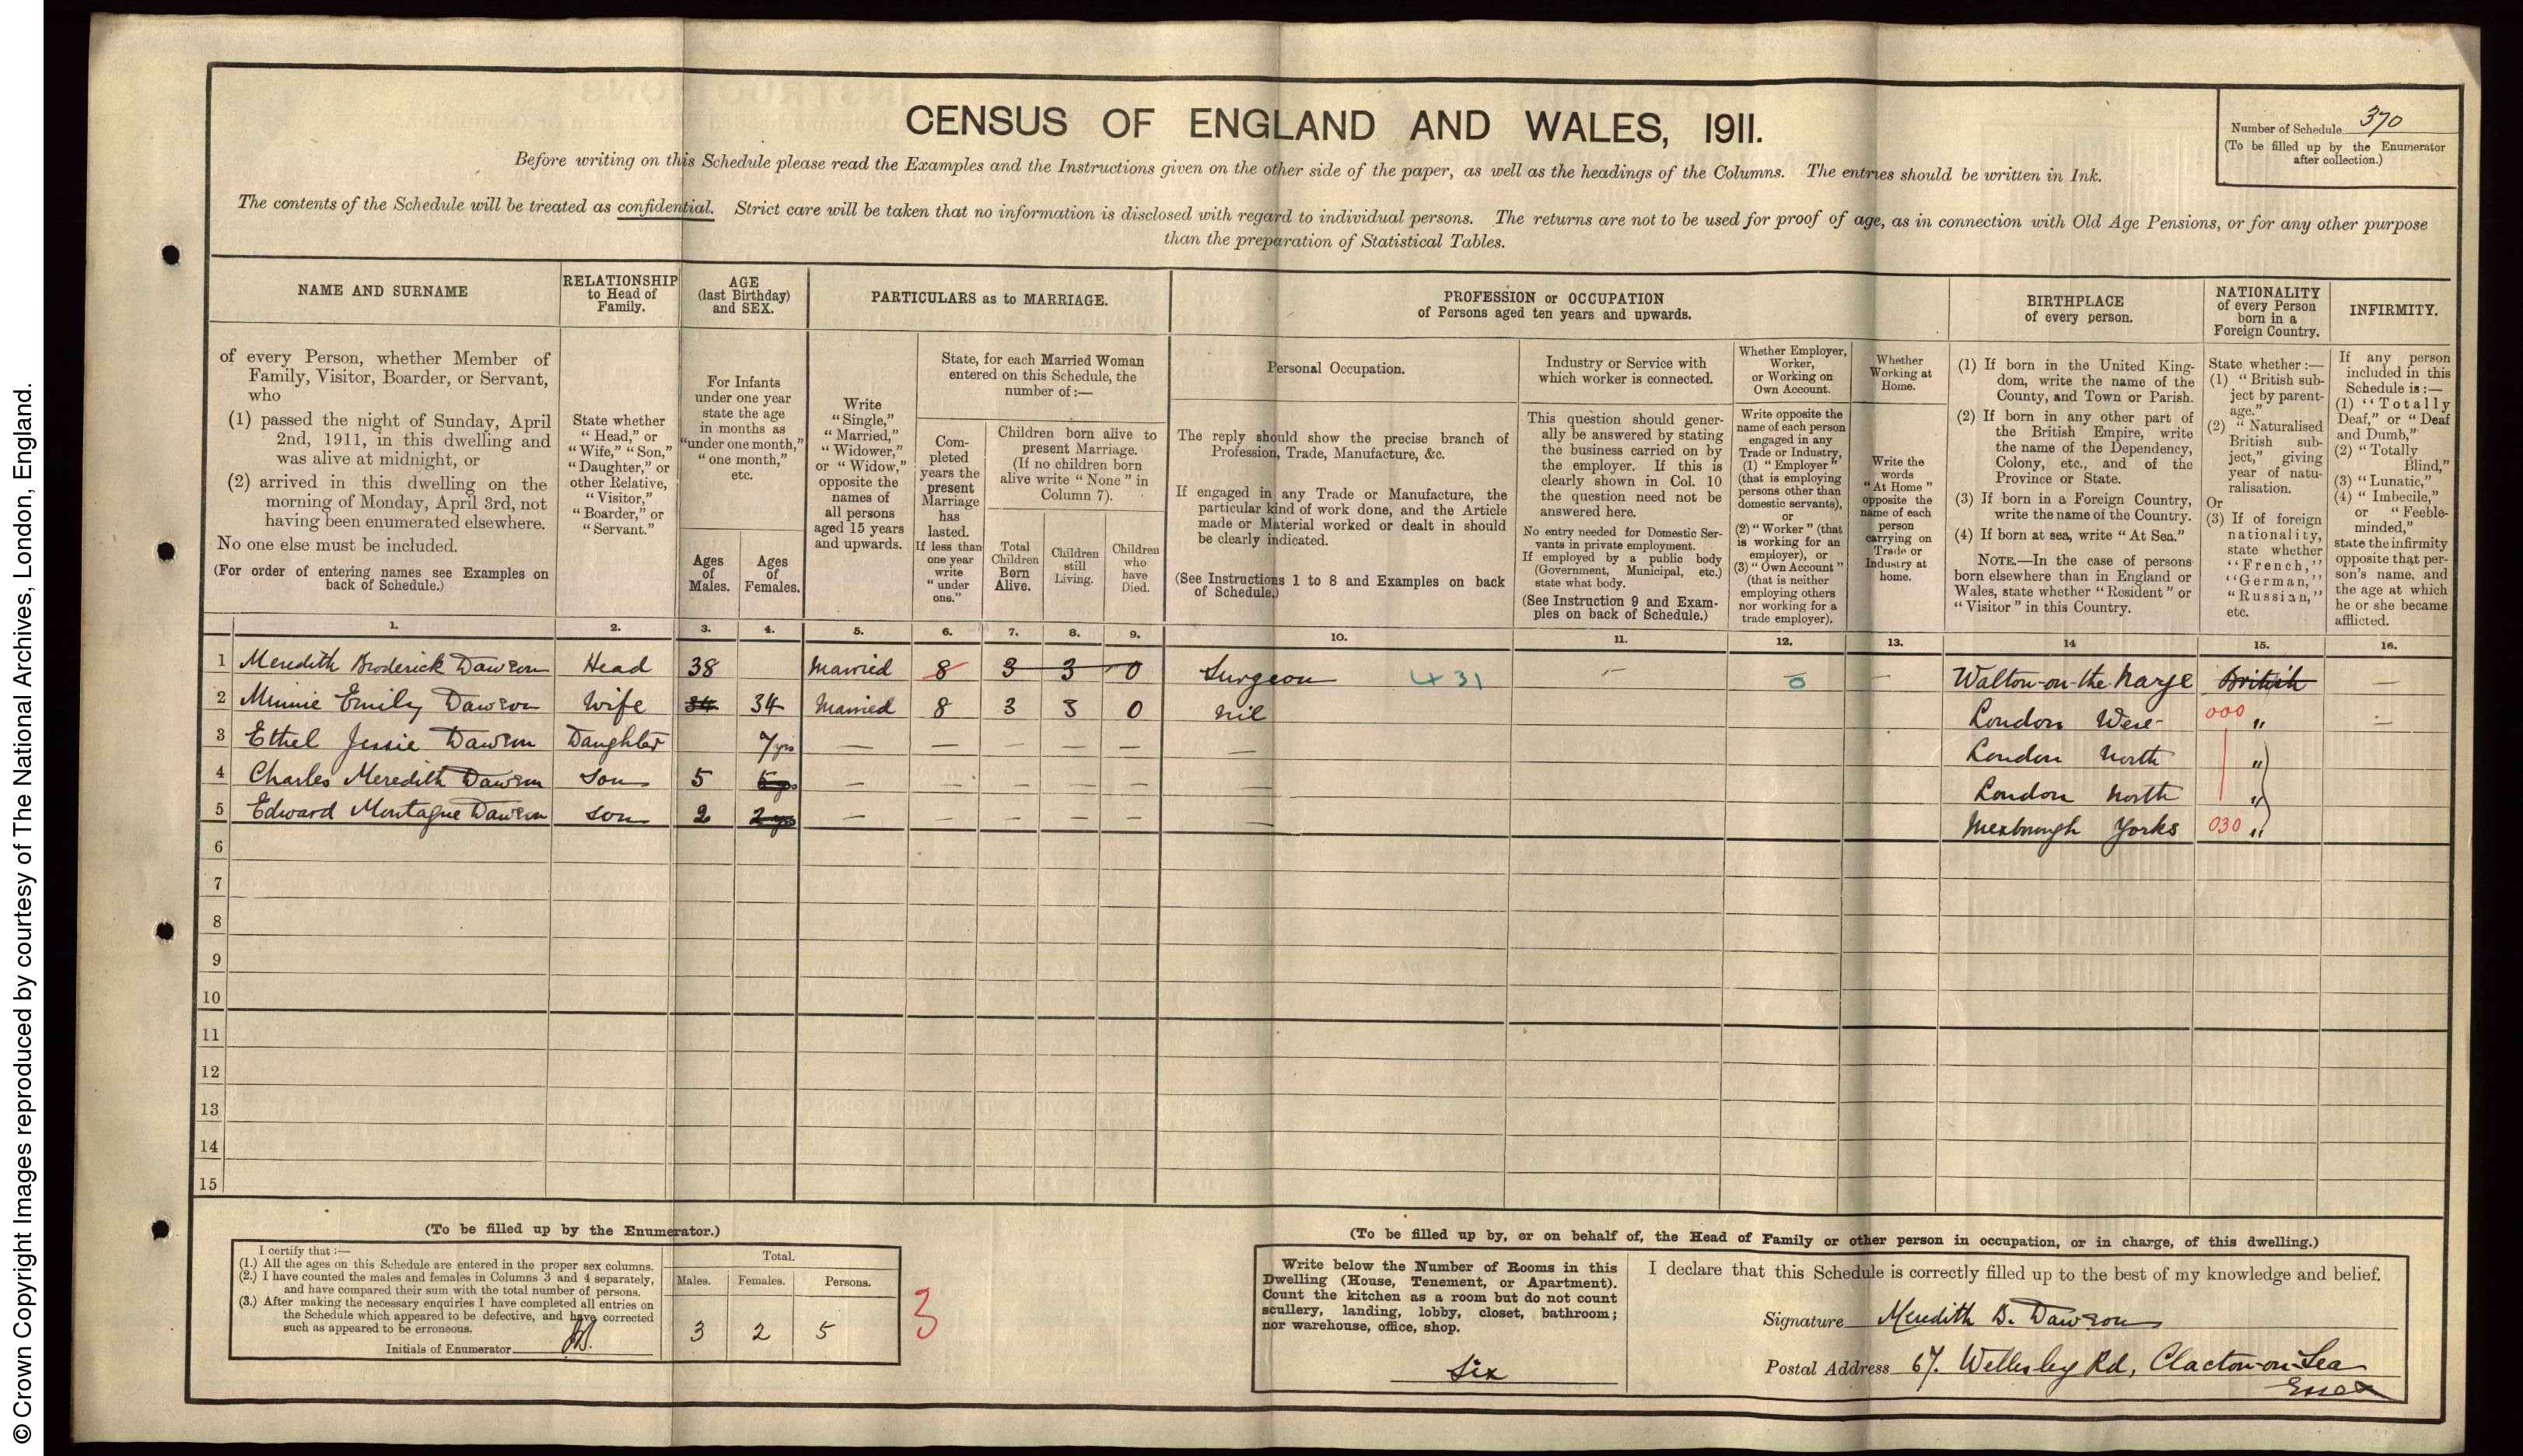 © Crown Copyright Images reproduced by courtesy of The National Archives, London, England.
CENSUS OF ENGLAND AND WALES, 1911.
Number of Schedule 370
(To be filled up by the Enumerator
after collection.)
Before writing on this Schedule please read the Examples and the Instructions given on the other side of the paper, as well as the headings of the Columns. The entries should be written in Ink.
The contents of the Schedule will be treated as confidential. Strict care will be taken that no information is disclosed with regard to individual persons. The returns are not to be used for proof of age, as in connection with Old Age Pensions, or for any other purpose
than the preparation of Statistical Tables.
NAME AND SURNAME
of every Person, whether Member of
Family, Visitor, Boarder, or Servant,
who
(1) passed the night of Sunday, April
2nd, 1911, in this dwelling and
was alive at midnight, or
(2) arrived in this dwelling on the
morning of Monday, April 3rd, not
having been enumerated elsewhere.
No one else must be included.
(For order of entering names see Examples on
back of Schedule.)
RELATIONSHIP
to Head of
Family.
State whether
"Head," or
"Wife," "Son,"
"Daughter," or
other Relative,
"Visitor,"
"Boarder," or
"Servant."
AGE
(last Birthday)
and SEX.
For Infants
under one year
state the age
in months as
"under one month,"
"one month,"
etc.
Ages
of
Males.
Ages
of
Females.
PARTICULARS as to MARRIAGE.
Write
"Single,"
"Married,"
"Widower,"
or "Widow,"
opposite the
names of
all persons
aged 15 years
and upwards.
State, for each Married Woman
entered on this Schedule, the
number of:—
Com-
pleted
years the
present
Marriage
has
lasted.
If less than
one year
write
"under
one."
Children born alive to
present Marriage.
(If no children born
alive write "None" in
Column 7).
Total
Children
Born
Alive.
Children
still
Living.
Children
who
have
Died.
PROFESSION or OCCUPATION
of Persons aged ten years and upwards.
Personal Occupation.
The reply should show the precise branch of
Profession, Trade, Manufacture, &c.
If engaged in any Trade or Manufacture, the
particular kind of work done, and the Article
made or Material worked or dealt in should
be clearly indicated.
(See Instructions 1 to 8 and Examples on back
of Schedule.)
Industry or Service with
which worker is connected.
This question should gener-
ally be answered by stating
the business carried on by
the employer. If this is
clearly shown in Col. 10
the question need not be
answered here.
No entry needed for Domestic Ser-
vants in private employment.
If employed by a public body
(Government, Municipal, etc.)
state what body.
(See Instruction 9 and Exam-
ples on back of Schedule.)
Whether Employer,
Worker,
or Working on
Own Account.
Write opposite the
name of each person
engaged in any
Trade or Industry,
(1) "Employer"
(that is employing
persons other than
domestic servants),
or
(2) "Worker" (that
is working for an
employer), or
(3) "Own Account"
(that is neither
employing others
nor working for a
trade employer).
Whether
Working at
Home.
Write the
words
"At Home"
opposite the
name of each
person
carrying on
Trade or
Industry at
home.
BIRTHPLACE
of every person.
(1) If born in the United King-
dom, write the name of the
County, and Town or Parish.
(2) If born in any other part of
the British Empire, write
the name of the Dependency,
Colony, etc., and of the
Province or State.
(3) If born in a Foreign Country,
write the name of the Country.
(4) If born at sea, write "At Sea."
NOTE.—In the case of persons
born elsewhere than in England or
Wales, state whether "Resident" or
"Visitor" in this Country.
NATIONALITY
of every Person
born in a
Foreign Country.
State whether:—
(1) "British sub-
ject by parent-
age."
(2) "Naturalised
British sub-
ject," giving
year of natu-
ralisation.
Or
(3) If of foreign
nationality,
state whether
"French,"
"German,"
"Russian,"
etc.
INFIRMITY.
If any person
included in this
Schedule is:—
(1) "Totally
Deaf," or "Deaf
and Dumb,"
(2) "Totally
Blind,"
(3) "Lunatic,"
(4) "Imbecile,"
or "Feeble-
minded,"
state the infirmity
opposite that per-
son's name, and
the age at which
he or she became
afflicted.
1. 2. 3. 4. 5. 6. 7. 8. 9. 10. 11. 12. 13. 14 15. 16.
1 Meredith Broderick Dawson Head 38 Married 8 3 3 0 Surgeon 431 — 0 — Walton-on-the-Naze British —
2 Minnie Emily Dawson Wife 34 34 Married 8 3 3 0 Nil London 000 " —
3 Ethel Jessie Dawson Daughter 7 yrs — — — — — — London North "
4 Charles Meredith Dawson Son 5 — — — — — — London North "
5 Edward Montague Dawson Son 2 2 yrs — — — — — — Mexbrough Yorks 030 "
6
7
8
9
10
11
12
13
14
15
(To be filled up by the Enumerator.)
I certify that:—
(1.) All the ages on this Schedule are entered in the proper sex columns.
(2.) I have counted the males and females in Columns 3 and 4 separately,
and have compared their sum with the total number of persons.
(3.) After making the necessary enquiries I have completed all entries on
the Schedule which appeared to be defective, and have corrected
such as appeared to be erroneous.
Initials of Enumerator
Total.
Males. Females. Persons.
3 2 5
3
(To be filled up by, or on behalf of, the Head of Family or other person in occupation, or in charge, of this dwelling.)
Write below the Number of Rooms in this
Dwelling (House, Tenement, or Apartment).
Count the kitchen as a room but do not count
scullery, landing, lobby, closet, bathroom;
nor warehouse, office, shop.
Six
I declare that this Schedule is correctly filled up to the best of my knowledge and belief.
Signature Meredith B. Dawson
Postal Address 67. Wellesley Rd, Clacton-on-Sea
Essex